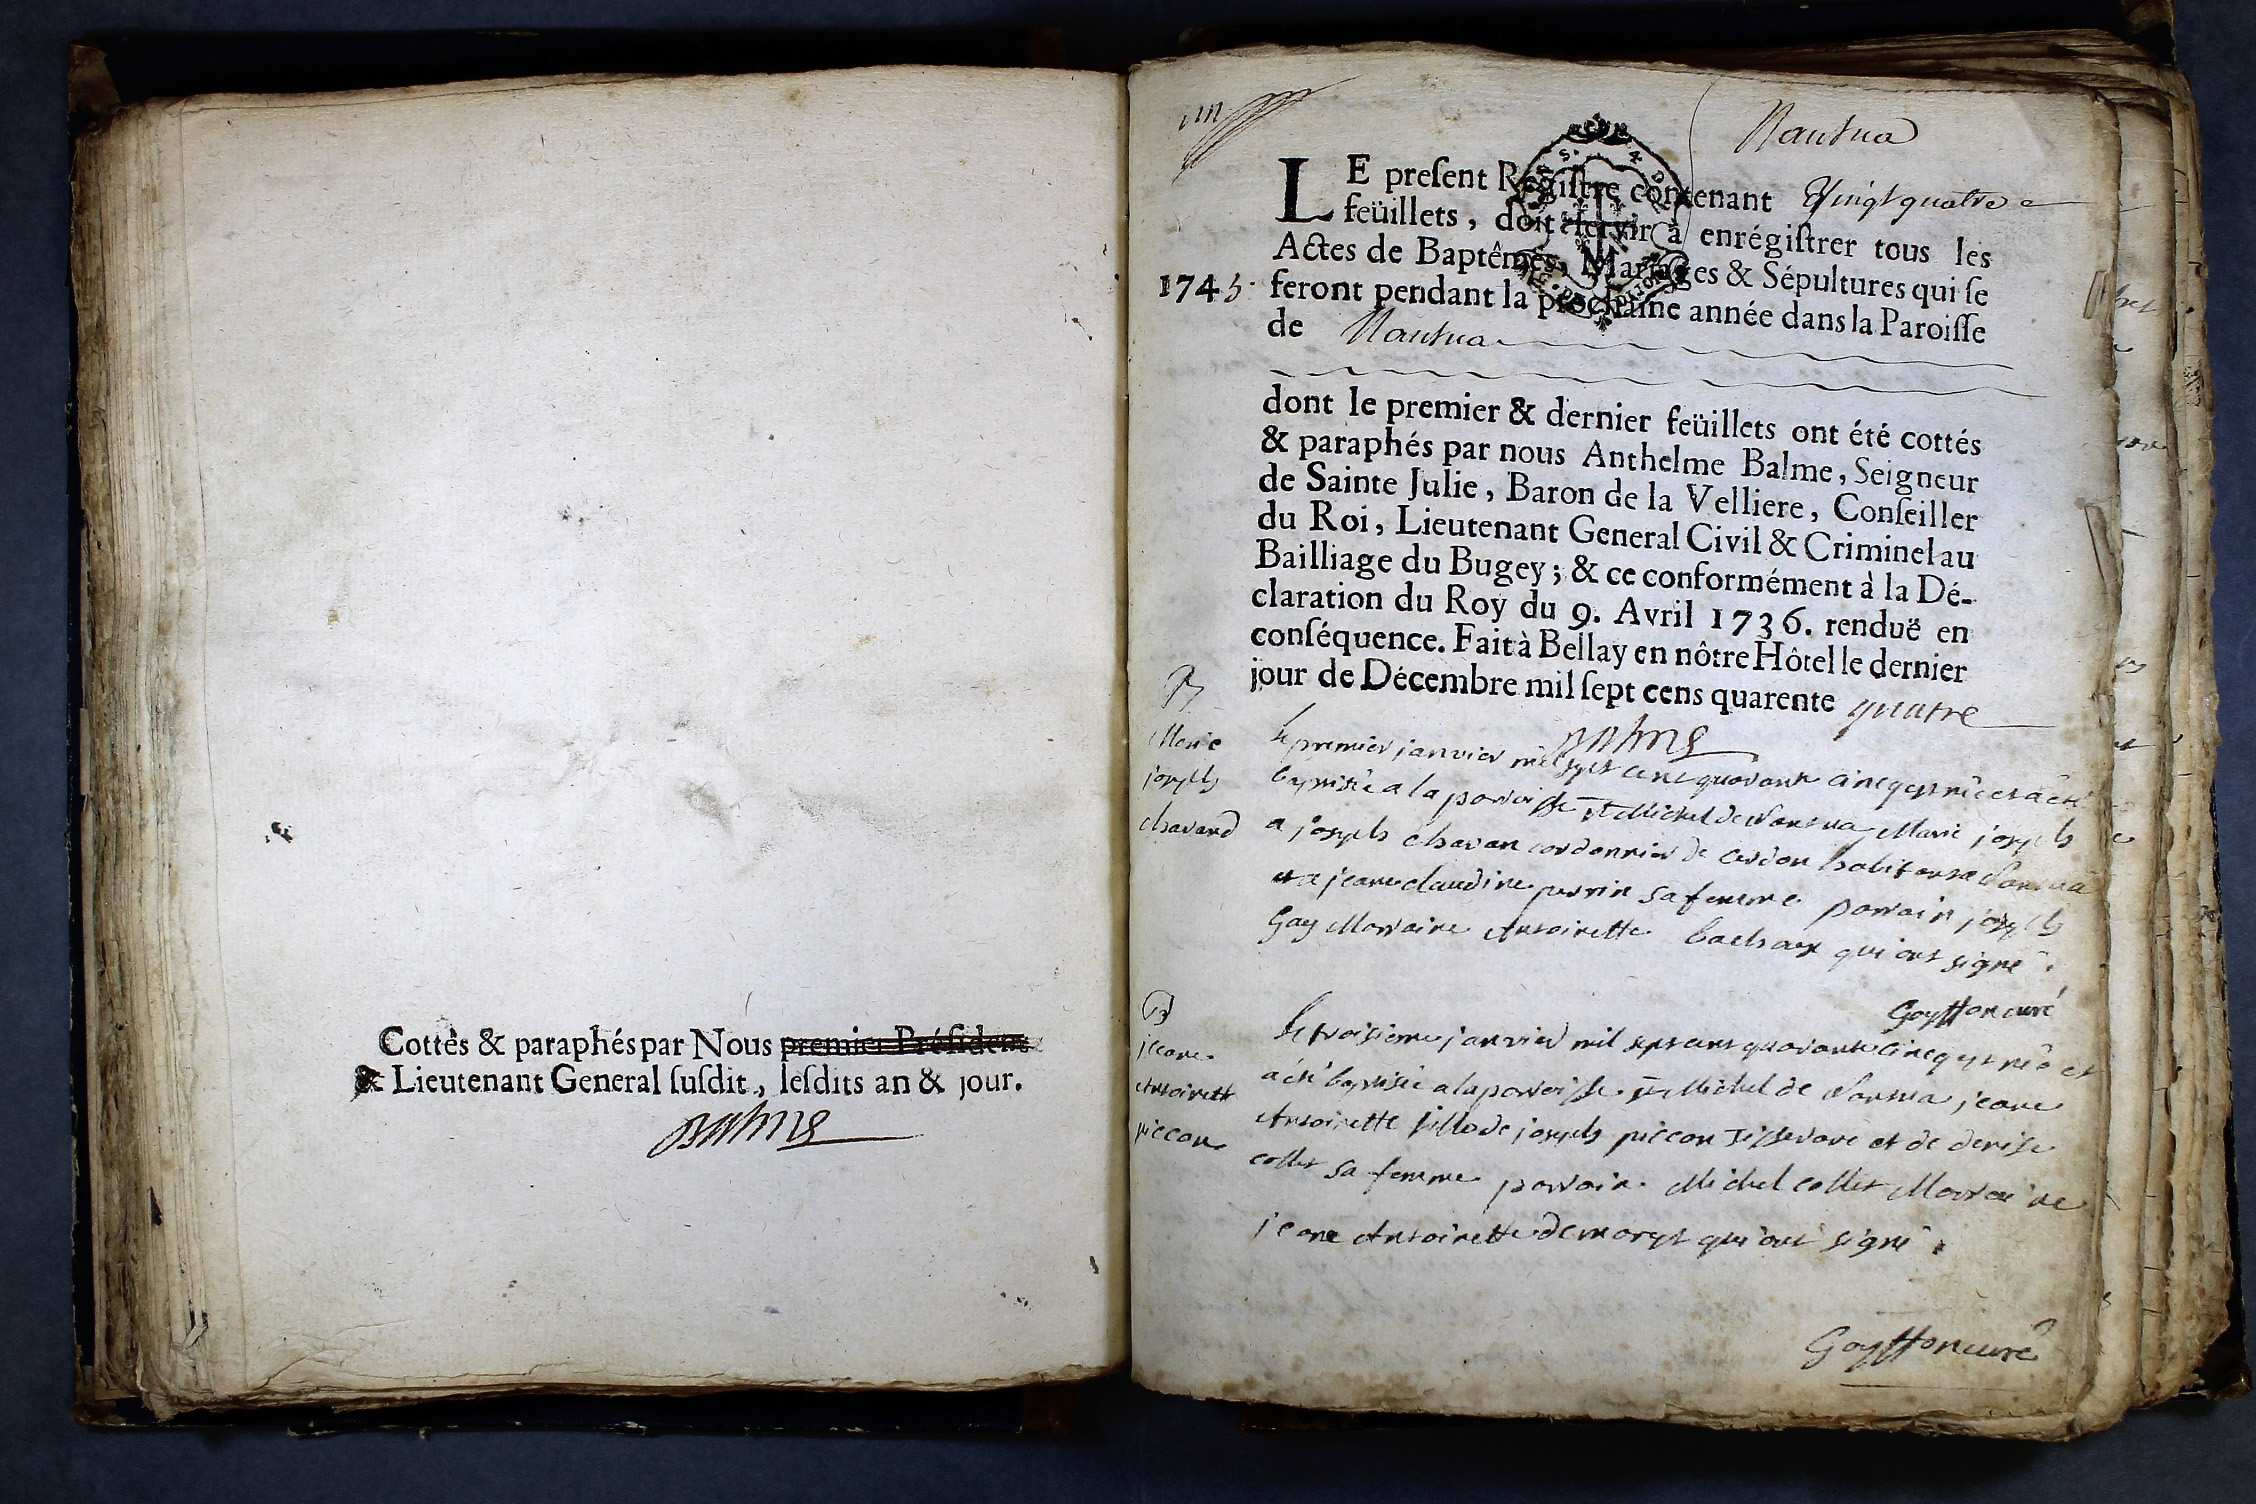 Cottés & paraphés par Nous premier Président
& Lieutenant General ſuſdit, leſdits an & jour.
Balme
Nantua
LE preſent Regiſtre contenant Vingt quatre
feüillets, doit ſervir à enrégiſtrer tous les
Actes de Baptêmes, Mariages & Sépultures qui ſe
1745. feront pendant la prochaine année dans la Paroiſſe
de Nantua
dont le premier & dernier feüillets ont été cottés
& paraphés par nous Anthelme Balme, Seigneur
de Sainte Julie, Baron de la Velliere, Conſeiller
du Roi, Lieutenant General Civil & Criminel au
Bailliage du Bugey; & ce conformément à la Dé-
claration du Roy du 9. Avril 1736. renduë en
conſéquence. Fait à Bellay en nôtre Hôtel le dernier
jour de Décembre mil ſept cens quarente quatre
Balme
Marie
joseph
chavand
le premier janvier mil sept cent quarante cincq est née et a été
baptisée a la parroisse st Michel de Nantua Marie joseph
a joseph chavan cordonnier de cerdon habitant a Nantua
et a jeane claudine perrin sa femme parrain joseph
Gay Marraine Antoinette bachaux qui ont signé.
Goyffon curé
B
jeane
Antoinette
piccon
le troisieme janvier mil sept cent quarante cincq est née et
a été baptisée a la parroisse st Michel de Nantua jeane
Antoinette fille de joseph piccon Tisserand et de denise
collet sa femme parrain Michel collet Marraine
jeane Antoinette demorest qui ont signé.
Goyffon curé